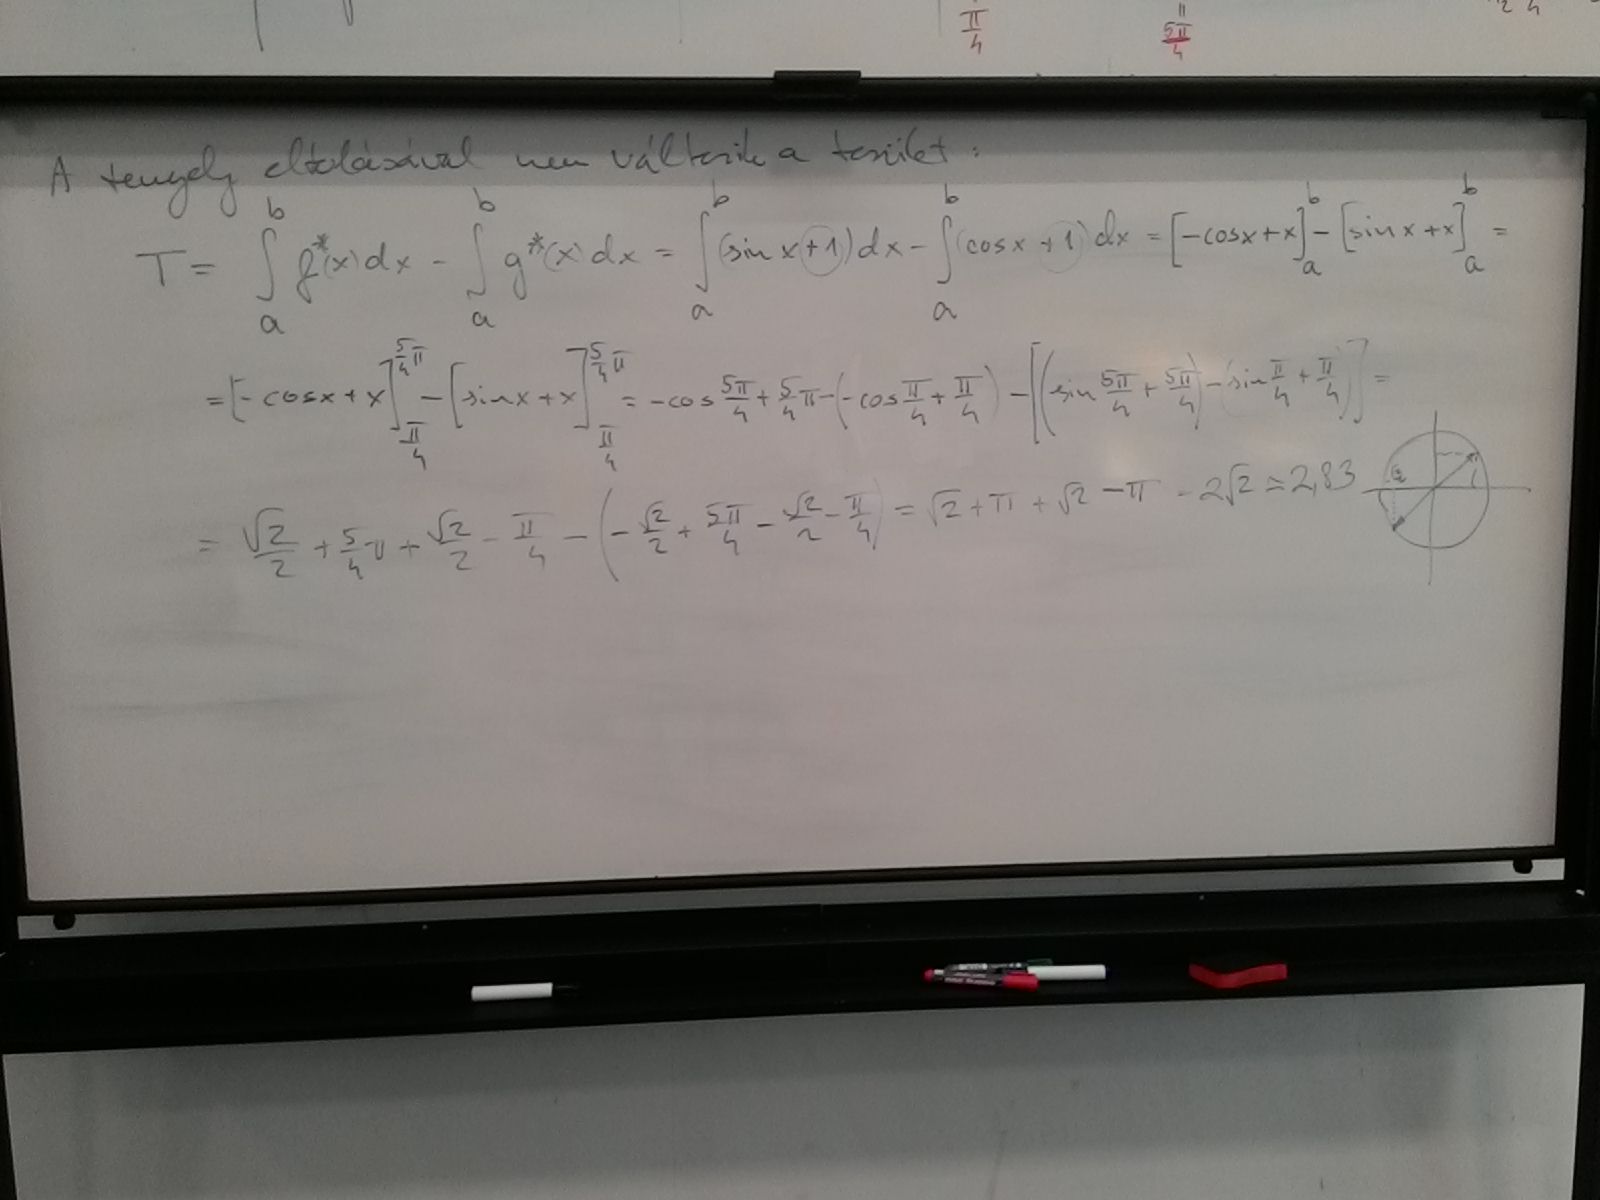 π/4 5π/4
A tengely eltolásával nem változik a terület:
T = ∫_a^b f*(x)dx - ∫_a^b g*(x)dx = ∫_a^b (sin x + 1)dx - ∫_a^b (cos x + 1)dx = [-cosx+x]_a^b - [sinx+x]_a^b =
= [-cosx+x]_{π/4}^{5/4 π} - [sinx+x]_{π/4}^{5/4 π} = -cos 5π/4 + 5/4 π - (-cos π/4 + π/4) - [(sin 5π/4 + 5π/4) - (sin π/4 + π/4)] =
= √2/2 + 5/4 π + √2/2 - π/4 - (-√2/2 + 5π/4 - √2/2 - π/4) = √2 + π + √2 - π - 2√2 ≈ 2,83